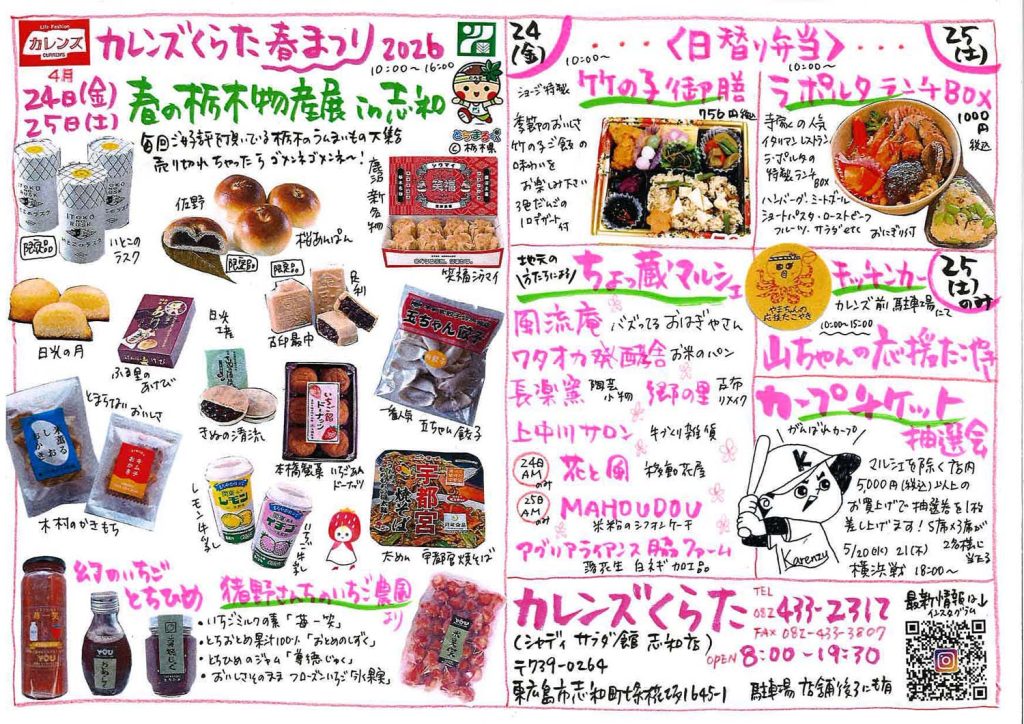 Life Fashion
カレンズ
CURRENS
カレンズくらた春まつり2026
10:00~16:00
4月
24日(金)
25日(土)
春の栃木物産展 in 志和
とちまるくん
©栃木県
毎回ご好評を頂いている栃木のうまいもの大集合
売り切れちゃったらゴメンネゴメンネ〜!
限定品
いとこのラスク
佐野
限定品
桜あんぱん
鹿沼
新名物
シウマイ
笑福
笑福シウマイ
日光の月
ふる里のあけび
日光
きぬの清流
限定品
足利
古印最中
本橋製菓 いちごあんドーナッツ
玉ちゃん餃子
一番人気 玉ちゃん餃子
とまらないおいしさ
木村のかきもち
レモン牛乳
いちご牛乳
宇都宮焼そば
太めん 宇都宮焼そば
幻のいちご
とちひめ
猪野さんちのいちご農園より
・いちごミルクの素「苺一笑」
・とちおとめ果汁100%「おとめのしずく」
・とちひめのジャム
・おいしさそのままフローズンいちご「氷果蜜」
24(金)
10:00~
〈日替り弁当〉
10:00~
25(土)
ショージ特製
竹の子御膳
756円税込
季節のおいしさ
竹の子ご飯の
味わいを
お楽しみ下さい
3色だんごの
1口デザート付
ラポルタランチBOX
1000円税込
寺家の人気
イタリアンレストラン
ラ・ポルタの
特製ランチBOX
ハンバーグ・ミートボール
ショートパスタ・ローストビーフ
フルーツ、サラダetc
おにぎり付
地元の
ちょっ蔵マルシェ
風流庵 バズってるおはぎやさん
ワタオカ発酵舎 お米のパン
長楽窯 陶芸小物
郷の里 古布リメイク
上中川サロン 手づくり雑貨
24日AMのみ
花と風 移動花屋
25日AMのみ
MAHOUDOU
米粉のシフォンケーキ
アグリアライアンス脇ファーム
落花生 白ネギ加工品
やまちゃんの応援たこやき
キッチンカー
25(土)のみ
カレンズ前駐車場にて
10:00~15:00
山ちゃんの応援たこやき
カープチケット
抽選会
がんばれカープ
K
Karenzu
マルシェを除く店内
5,000円(税込)以上の
お買上げで抽選券を1枚
差し上げます!S席×3席が
2名様に当たる
5/20(水) 21(木)
横浜戦 18:00~
カレンズくらた
(シャディ サラダ館 志和店)
〒739-0264
東広島市志和町七条椛坂1645-1
TEL 082 433-2317
FAX 082-433-3807
OPEN 8:00-19:30
駐車場 店舗後ろにも有
最新情報は↓
インスタグラム